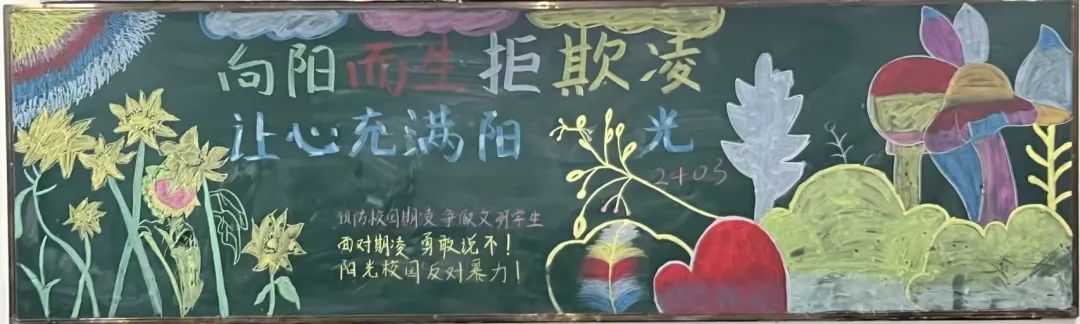 向阳而生拒欺凌
让心充满阳光
2403
预防校园期凌 争做文明学生
面对期凌 勇敢说不!
阳光校园 反对暴力!